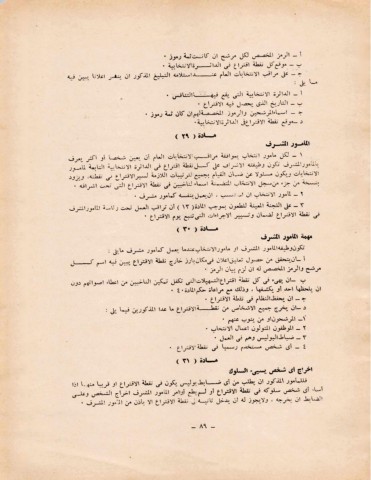 أ ـ الرمز المخصص لكل مرشح ان كانت ثمة رموز ٠
ب ـ موقع كل نقطة اقتراع في الدائرة الانتخابية ٠
جـ ـ على مراقب الانتخابات العام عند استلامه التبليغ المذكور ان ينشر اعلانا يبين فيه
ما يلى :
أ ـ الدائرة الانتخابية التى يقع فيها التنافس ٠
ب ـ التاريخ الذى يحصل فيه الاقتراع ٠
جـ ـ اسماء المرشحين والرموز المخصصة لهم ان كان ثمة رموز ٠
د ـ موقع نقطة الاقتراع في الدائرة الانتخابية ٠
مــادة ( ٢٩ )
المأمور المشرف
١ ـ لكل مأمور انتخاب بموافقة مراقب الانتخابات العام أن يعين شخصا أو اكثر يعرف
بالمأمور المشرف تكون وظيفته الاشراف على كل نقطة اقتراع في الدائرة الانتخابية التابعة لمأمور
الانتخابات ويكون مسئولا عن ضمان القيام بجميع الترتيبات اللازمة لسير الاقتراع في نقطته، ويزود
بنسخة من جزء من سجل الانتخاب المتضمنة اسماء الناخبين في نقطة الاقتراع التى تحت اشرافه ٠
٢ ـ لمأمور الانتخاب ان يعمل بنفسه كمأمور مشرف ٠
٣ ـ على اللجنة المعينة للطعون بموجب المادة ( ١٢ ) أن تراقب العمل تحت رئاسة المأمور المشرف
في نقطة الاقتراع لضمان وتسيير الاجراءات التى تتبع يوم الاقتراع ٠
مــادة ( ٣٠ )
مهمة المأمور المشرف
تكون وظيفة المأمور المشرف او مأمور الانتخاب عندما يعمل كمأمور مشرف مايلى :
أ ـ ان يتحقق من حصول تعليق اعلان في مكان بارز خارج نقطة الاقتراع يبين فيه اسم كل
مرشح والرمز المخصص له ان لزم بيان الرمز ٠
ب ـ ان يهيء في كل نقطة الاقتراع التسهيلات التى تكفل تمكين الناخبين من اعطاء اصواتهم دون
ان يلحظها احد او يكتشفها ، وذلك مع مراعاة حكم المادة ٤٠
جـ ـ ان يحفظ النظام في نقطة الاقتراع ٠
د ـ ان يخرج جميع الاشخاص من نقطة الاقتراع ما عدا المذكورين فيما يلى :
١ ـ المرشحون او من ينوب عنهم ٠
٢ ـ الموظفون المتولون اعمال الانتخاب ٠
٣ ـ ضباط البوليس وهم في العمل ٠
٤ ـ أى شخص مستخدم رسميا في نقطة الاقتراع ٠
مــادة ( ٣١ )
اخراج أى شخص يسيء السلوك
للمأمور المذكور ان يطلب من أى ضابط بوليس يكون في نقطة الاقتراع او قريبا منها اذا
أساء أى شخص سلوكه في نقطة الاقتراع أو لم يطع أوامر المأمور المشرف اخراج الشخص وعلى
الضابط ان يخرجه ، ولا يجوز له أن يدخل ثانية الى نقطة الاقتراع الا باذن من المأمور المشرف ٠
ـ ٨٦ ـ